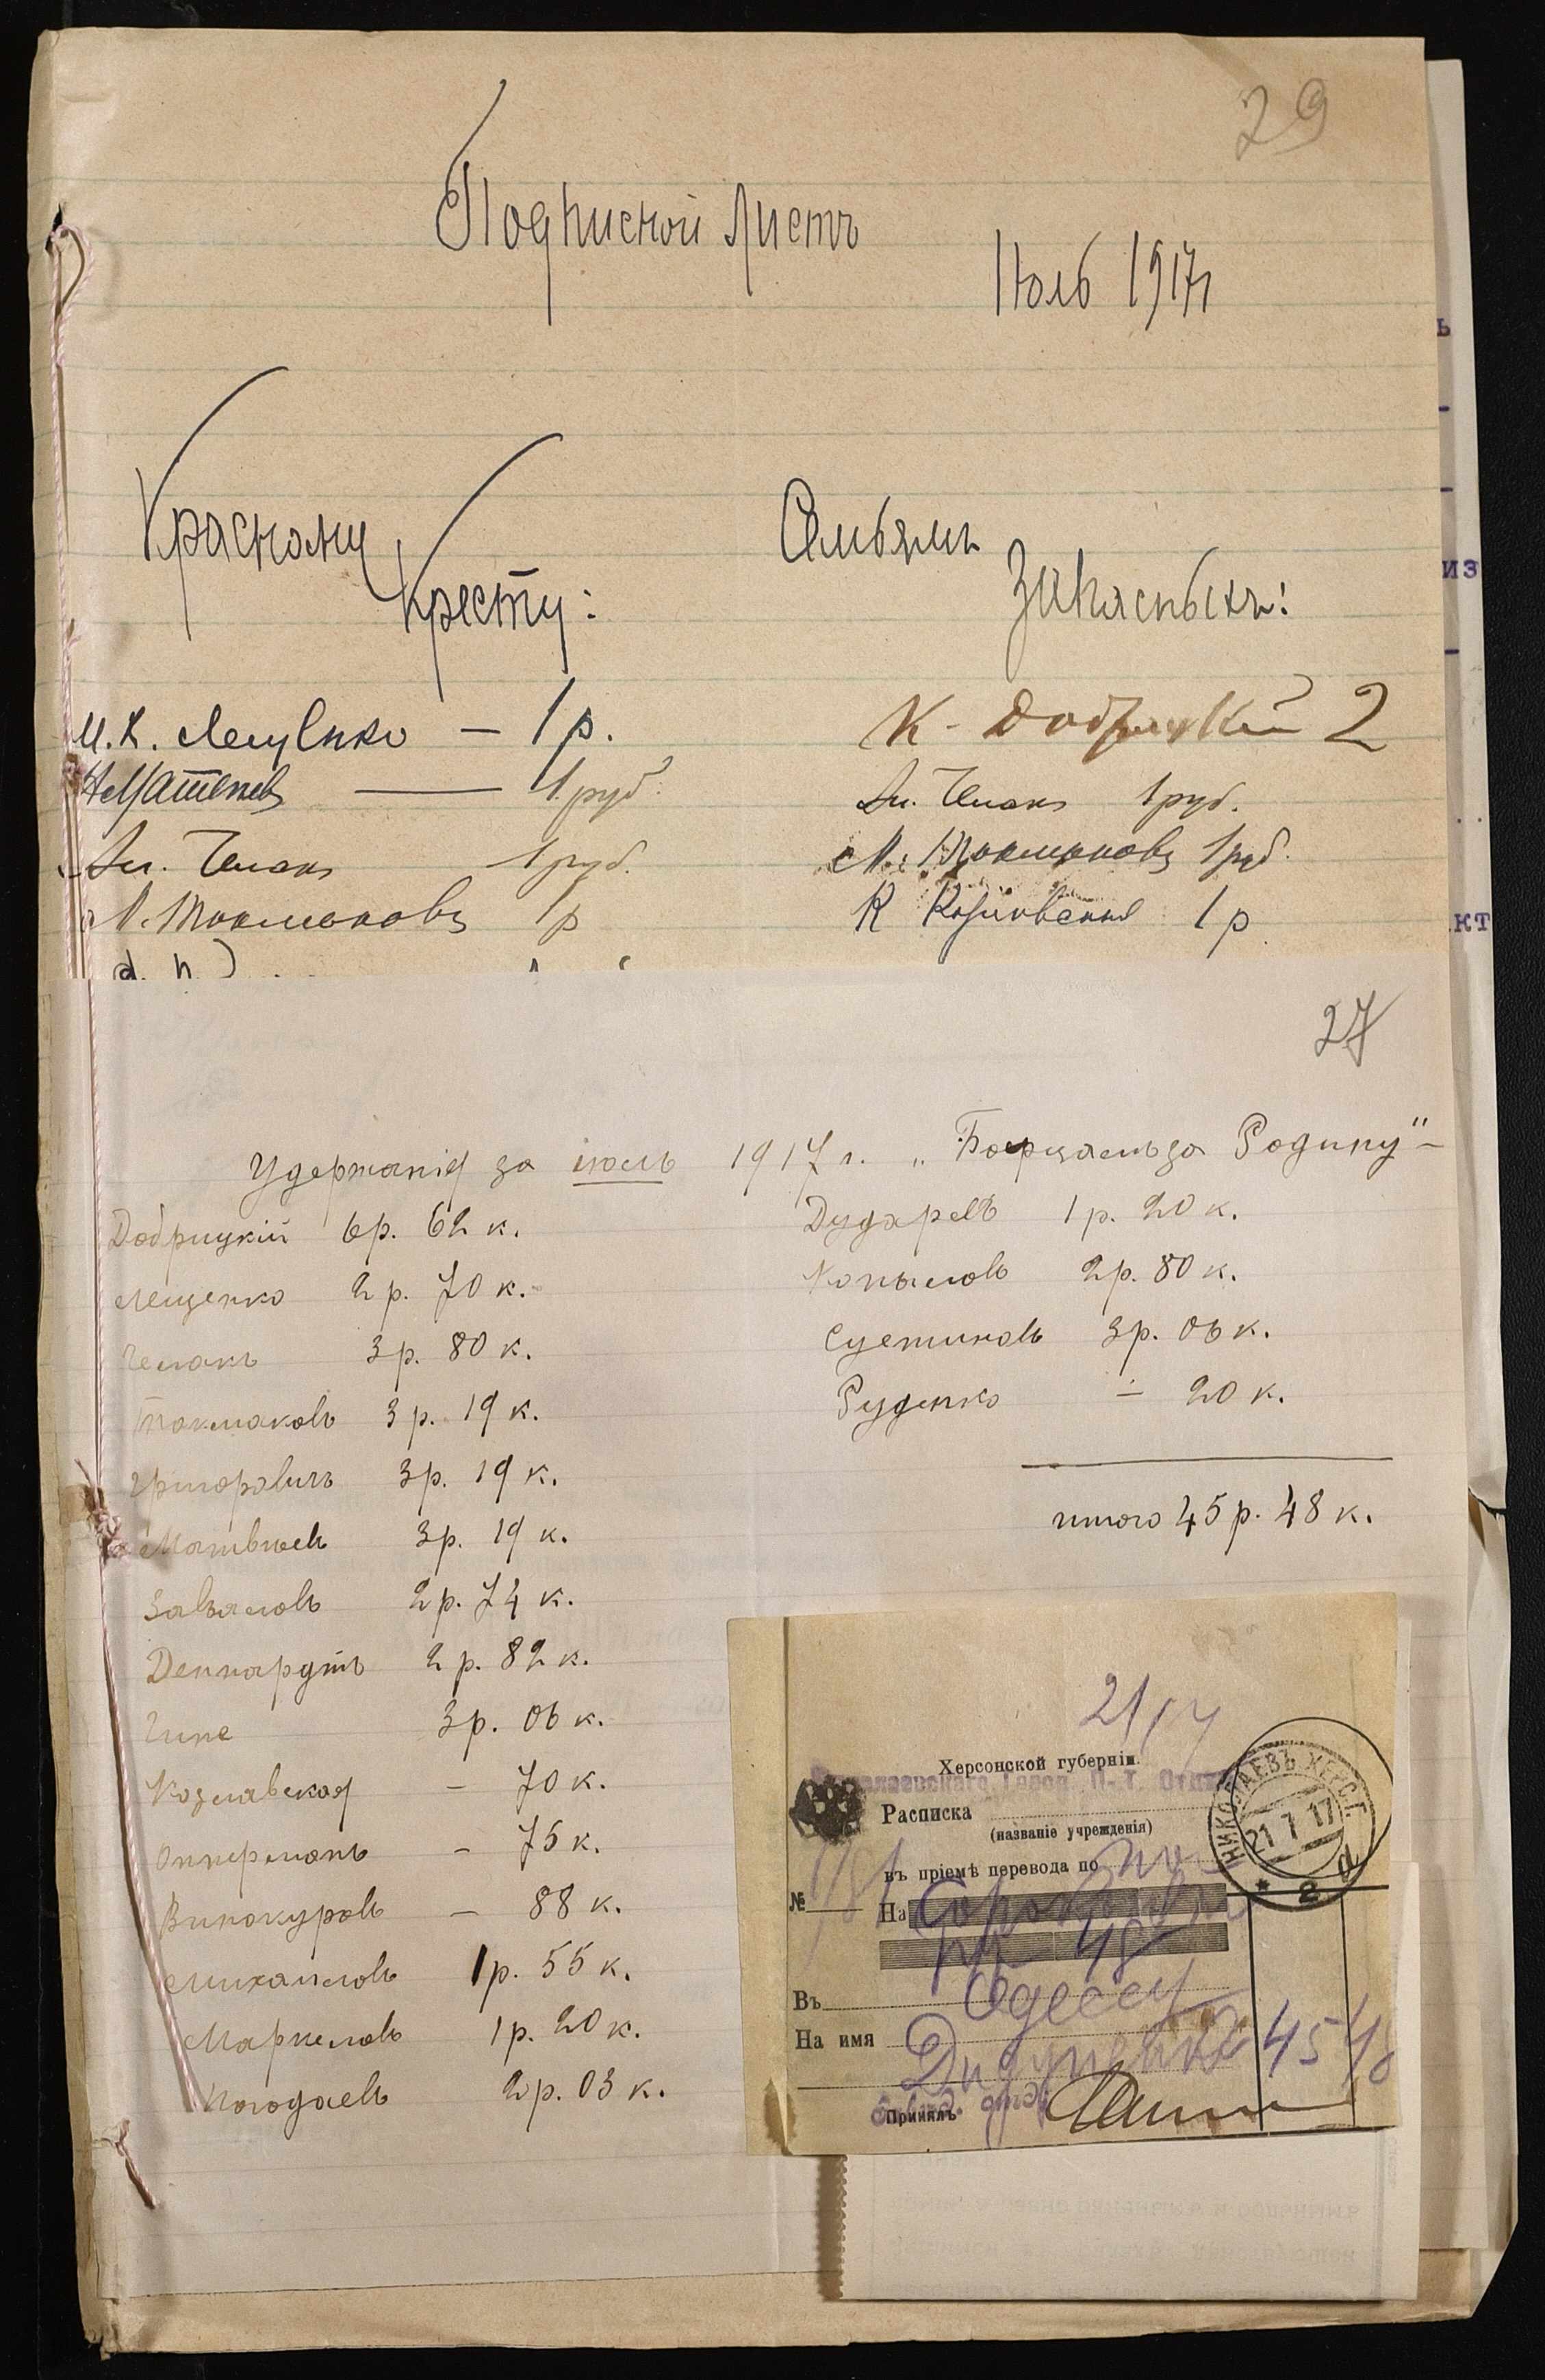 29
Подписной Листъ
Июль 1917 г
Красному
Кресту:
Семьямъ
Запасныхъ:
И. К. Лещенко — 1 р.
Матвеевъ — 1 руб.
Ал. Чемакъ 1 руб.
М. Токмаковъ 1 р
К. Добрицкий 2
Ал. Чемакъ 1 руб.
М. Токмаковъ 1 руб.
К Козловская 1 р
27
Удержанія за июль 1917 г. „Борцамъ за Родину"
Добрицкій 6 р. 62 к.
Лещенко 2 р. 70 к.
Чемакъ 3 р. 80 к.
Токмаковъ 3 р. 19 к.
Григоровичъ 3 р. 19 к.
Матвѣевъ 3 р. 19 к.
Завьяловъ 2 р. 74 к.
Деннардтъ 2 р. 82 к.
3 р. 06 к.
Козловская – 70 к.
Опперманъ – 75 к.
Винокуровъ – 88 к.
Михайловъ 1 р. 55 к.
Маркеловъ 1 р. 20 к.
Погодаевъ 2 р. 03 к.
Дударевъ 1 р. 20 к.
Копыловъ 2 р. 80 к.
Суетиновъ 3 р. 06 к.
Руденко – 20 к.
итого 45 р. 48 к.
21/7
Херсонской губерніи.
Расписка
(названіе учрежденія)
въ пріемѣ перевода по
№
На
48
Въ Одессу
На имя
45 48
Принялъ
НИКОЛАЕВЪ ХЕРС. Г.
21 7 17
из
кт